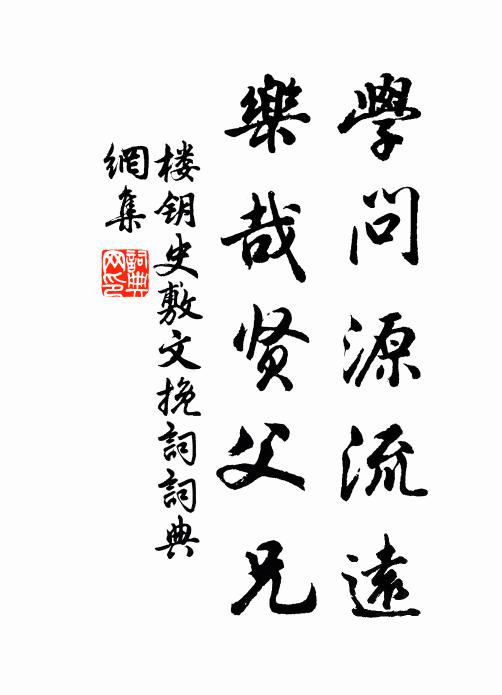 學問源流遠
樂哉贤父兄
楼钥史敷文挽詞詞典
網集
詞典
网印